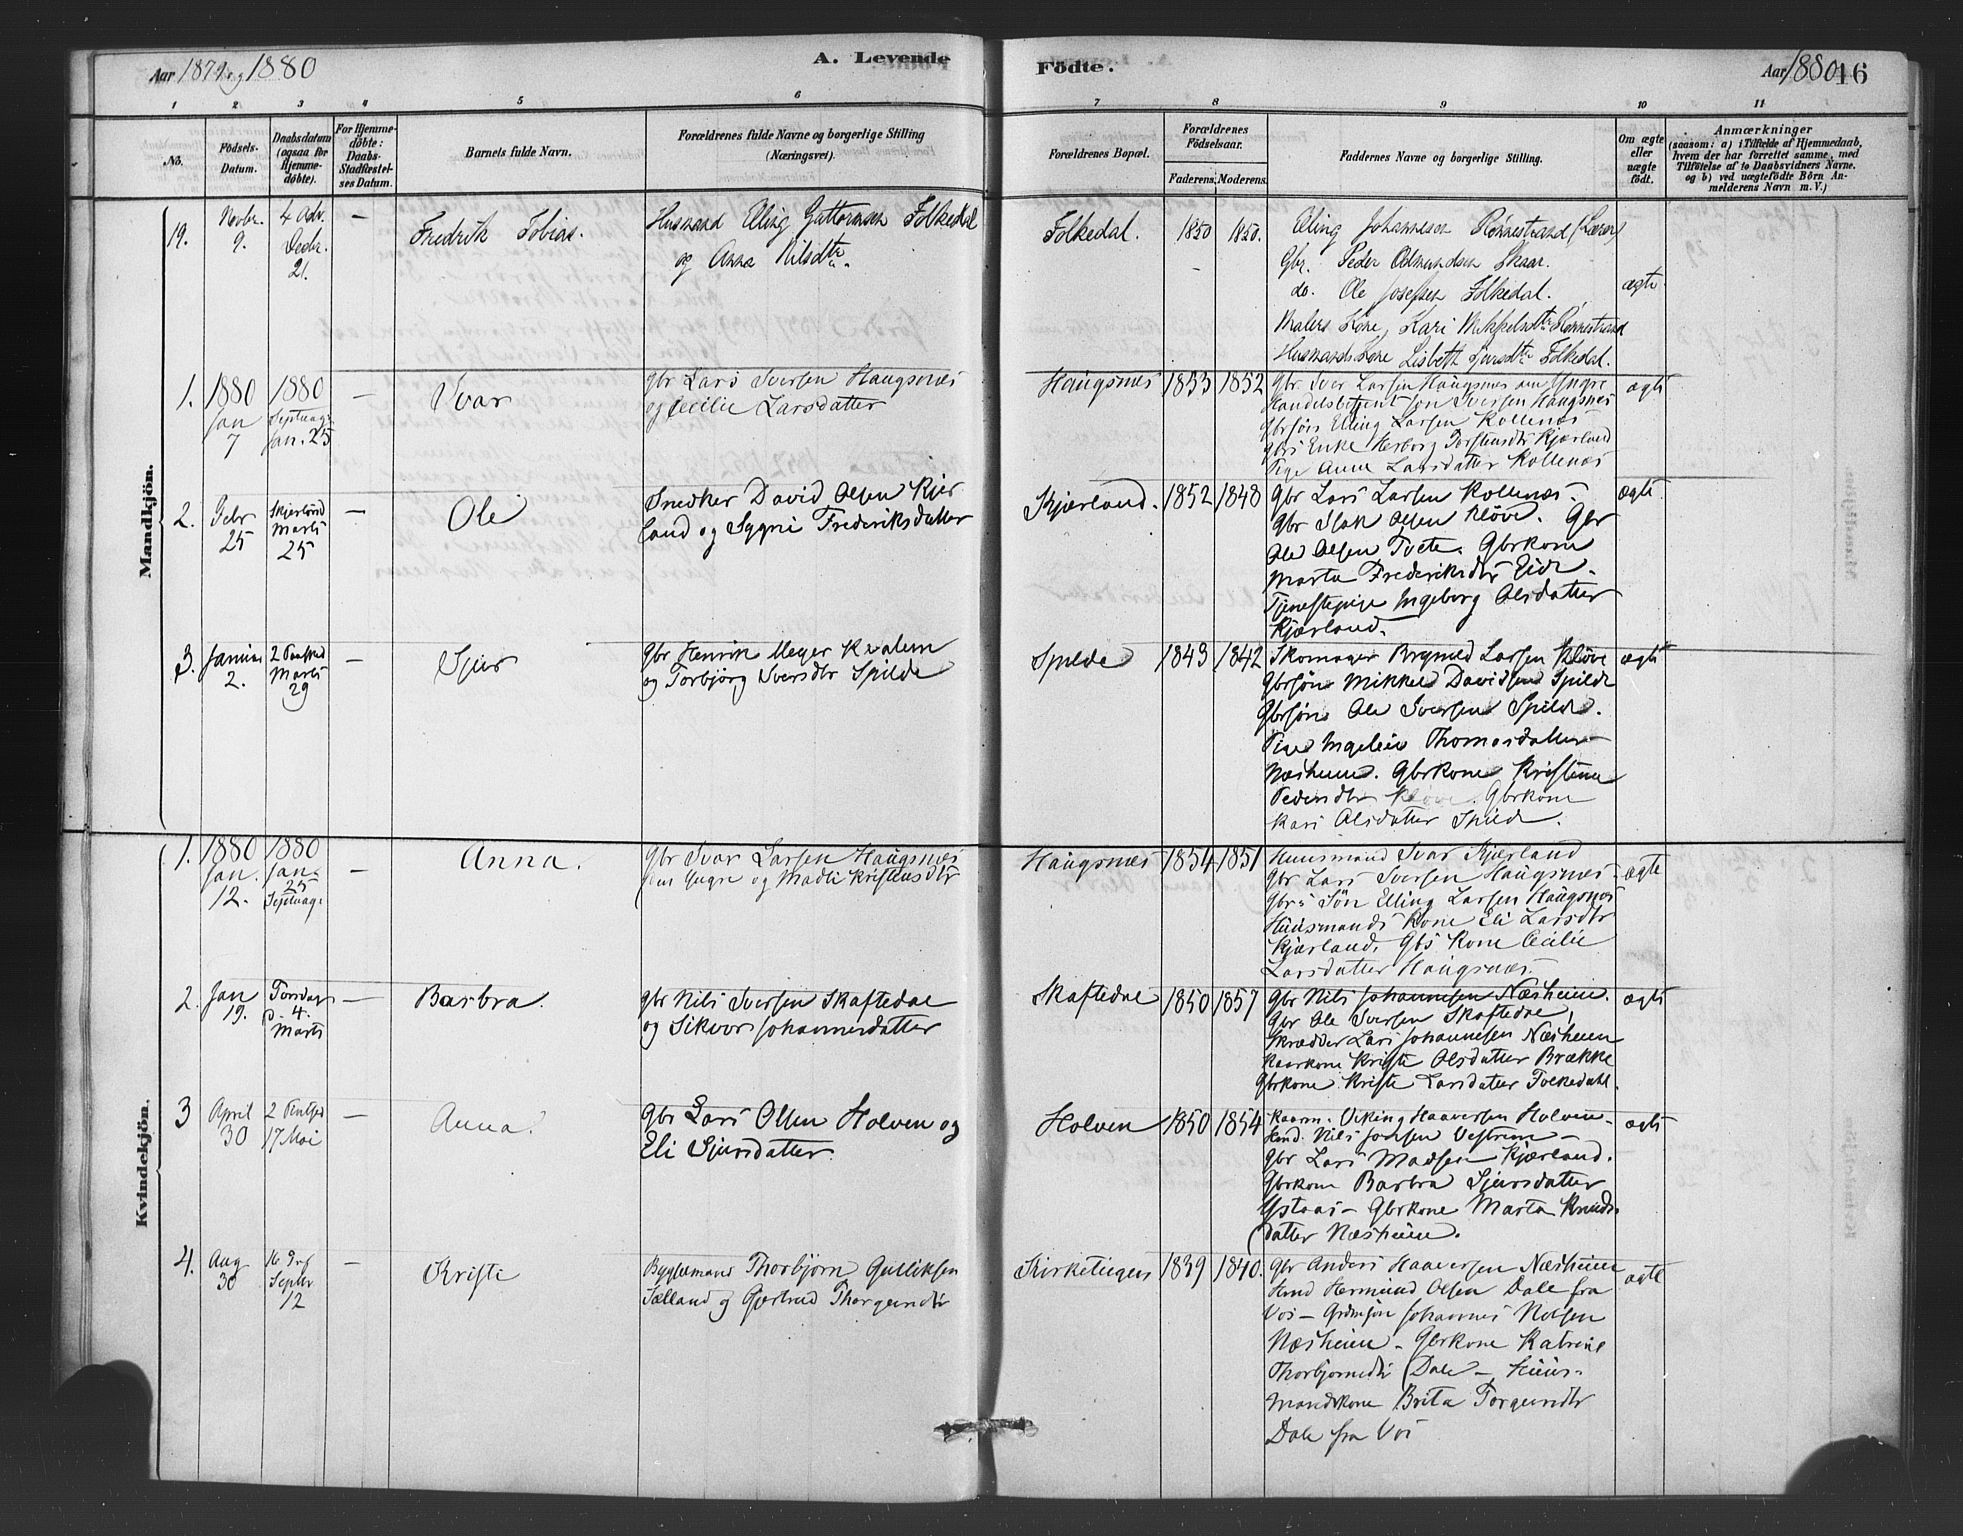 Aar 1879 og 1880
A. Levende
Födte.
Aar 1880
16
1 2 3 4 5 6 7 8 9 10 11
No.
Födsels-
Datum.
Daabsdatum
(ogsaa for
Hjemme-
döbte).
For Hjemme-
döbte:
Daabs-
Stadfæstel-
ses Datum.
Barnets fulde Navn.
Forældrenes fulde Navne og borgerlige Stilling
(Næringsvei).
Forældrenes Bopæl.
Forældrenes
Födselsaar.
Faderens. Moderens.
Faddernes Navne og borgerlige Stilling.
Om ægte
eller
uægte
födt.
Anmærkninger
(saasom: a) i Tilfælde af Hjemmedaab,
hvem der har forrettet samme, med
Tilföielse af to Daabsvidners Navne.
og b) ved uægtefödte Börn An-
melderens Navn m. V.)
Mandkjön.
19.
Novbr.
9.
4 Adv.
Decbr.
21.
—
Fredrik Tobias.
Husmand Elling Guttormsen Folkedal
og Anna Nilsdtr.
Folkedal.
1850 1850.
Elling Johannesen Rønnestrand (Lærer)
Gbr. Peder Odmundsen Skaar.
do. Ole Josefsen Folkedal.
Malers Kone, Kari Mikkelsdtr Rønnestrand
Husmands Kone Lisbeth Sjursdtr Folkedal.
ægte
1.
1880
Jan
7
1880
Septuag.
Jan. 25
—
Ivar
Gbr Lars Iversen Haugsnes
og Cecilie Larsdatter
Haugsnes
1853 1852
Gbr Iver Larsen Haugsnes den Yngre
Handelsbetjent Jon Iversen Haugsnes
Gbrsøn Elling Larsen Kollenæs
Gbrs Enke Herborg Torsteinsdtr Kjærland
Pige Anna Larsdatter Kollenæs
ægte
2.
Febr
25
Skjertorsd
Marts
25
—
Ole
Snedker David Olsen Kjer
land og Sygni Frederiksdatter
Kjærland.
1852 1848
Gbr Lars Larsen Kollenæs.
Gbr Isak Olsen Kløve. Gbr
Ole Olsen Tveite. Gbrkone
Marta Frederiksdtr Eide.
Tjenestepige Ingeborg Olsdatter
Kjærland.
ægte
3.
Januar
2.
2 Paasked
Marts
29
—
Sjur
Gbr Henrik Meyer Kvalem
og Torbjörg Iversdtr Spilde
Spilde
1843 1842
Skomager Brynild Larsen Kløve
Gbrsøn Mikkel Davidsen Spilde
Gbrsøn Ole Iversen Spilde.
Pige Ingeleiv Thomasdatter
Næsheim. Gbrkone Kristine
Pedersdtr Kløve. Gbrkone
Kari Olsdatter Spilde.
ægte
Kvindekjön.
1.
1880
Jan.
12.
1880
Jan.
25
Septuag.
—
Anna.
Gbr Ivar Larsen Haugsnes
den Yngre og Madli Kristensdtr
Haugsnes
1854 1851
Huusmand Ivar Kjærland
Gbr Lars Iversen Haugsnes
Gbrs Søn Elling Larsen Haugsnes
Huusmands Kone Eli Larsdtr
Kjærland, Gbs Kone Cecilie
Larsdatter Haugsnes.
ægte
2.
Jan
19.
Torsdag
4.
Marts
—
Barbra.
Gbr Nils Iversen Skaftedal
og Sikvor Johannesdatter
Skaftedal
1850 1857
Gbr Nils Johannesen Næsheim.
Gbr Ole Iversen Skaftedal,
Skrædder Lars Johannesen Næsheim
Kaarkone Kristi Olsdatter Brække
Gbrkone Kristi Larsdatter Folkedahl.
ægte
3
April
30
2 Pintsed
17 Mai
—
Anna.
Gbr Lars Olsen Holven og
Eli Sjursdatter.
Holven
1850 1854
Kaarm. Viking Haaversen Holven
Hmd. Nils Jonsen Vestrem
Gbr Lars Madsen Kjærland.
Gbrkone Barbra Sjursdatter
Ystaas — Gbrkone Marta Knuds-
datter Næsheim.
ægte
4.
Aug
30
16
Septbr
12
—
Kristi
Bygselmand Thorbjörn Gulliksen
Sælland og Gjertrud Thorgeirsdtr
Kirketeigen
1839 1840.
Gbr Anders Haaversen Næsheim
Hmd Hermund Olsen Dale fra
Vos — Grdmsøn Johannes Nilsen
Næsheim — Gbrkone Katrine
Thorbjornsdtr Dale — Huus-
mandskone Brita Torgeirsdtr
Dale fra Vos
ægte